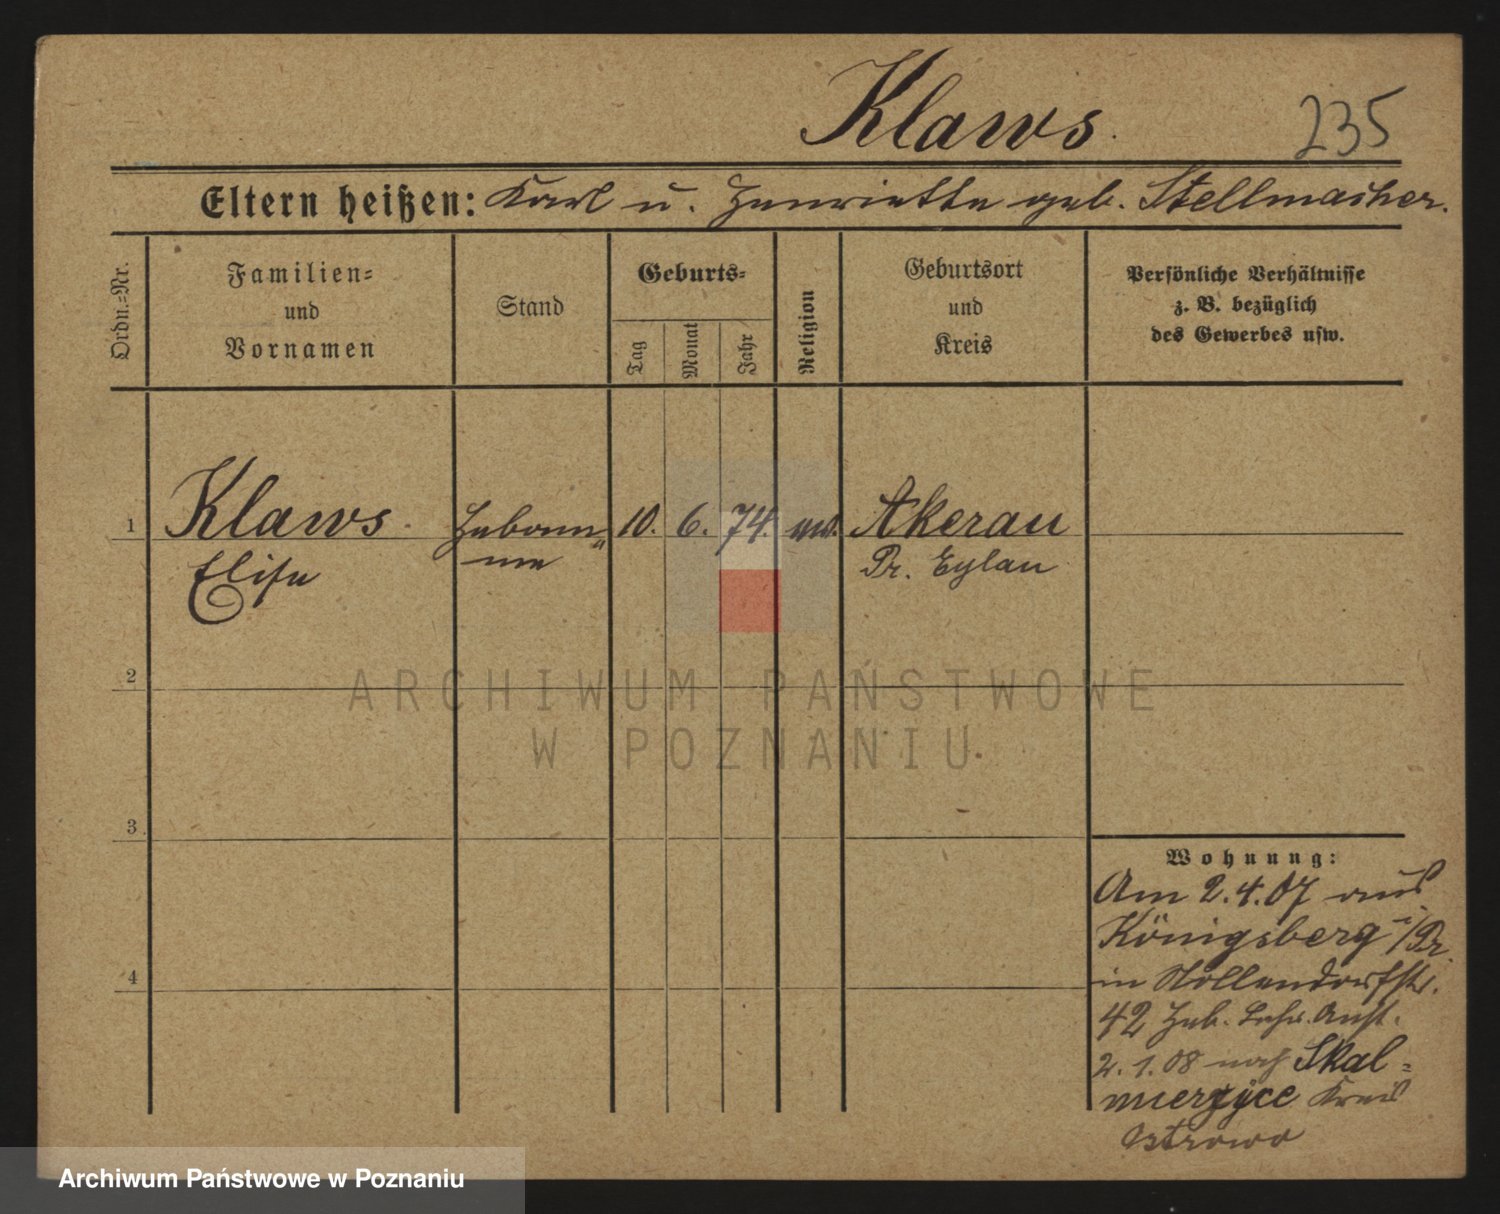 Klaws.
235
Eltern heißen: Karl u. Henriette geb. Stellmacher.
Ordn.-Nr.
Familien-
und
Vornamen
Stand
Geburts-
Tag
Monat
Jahr
Religion
Geburtsort
und
Kreis
Persönliche Verhältnisse
z. B. bezüglich
des Gewerbes usw.
1 Klaws. Hebam- 10. 6. 74. ev. Akerau
Elise me Pr. Eylau
2
ARCHIWUM PAŃSTWOWE
W POZNANIU
3
Wohnung:
Am 2.4.07 aus
Königsberg i/Pr.
in Nollendorfstr.
4
42 Heb. Lehr. Anst.
2.1.08 nach Skal-
mierzyce Kreis
Ostrowo
Archiwum Państwowe w Poznaniu